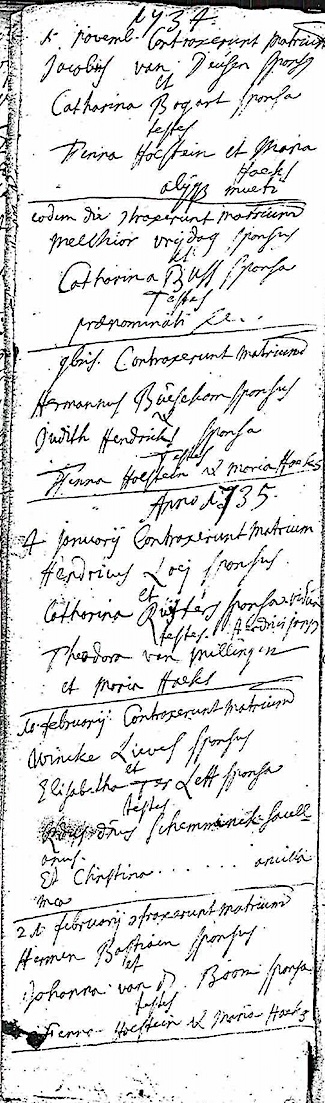 1734.
novemb. Contraxerunt matrium
Jacobus van Deusen sponss
et
Catharina Bogart sponsa
testes
Fienna Holstein et Maria
Haeks
alijq multi
eodem die 9traxerunt matrium
Melchior vrijdag sponsus
et
Catharina Buss sponsa
Testes
praenominati
9bris. Contraxerunt matrium
Hermannus sponsus
&
Judith Hendricks sponsa
Testes
Fienna Holstein & Maria Haeks
Anno 1735.
4 januarij Contraxerunt matrium
Hendricus Loeij sponsus
et
Catharina Ruijters sponsa vidua
testes. Hendrici
Theodora van Millingen
et Maria Haeks
februarij. Contraxerunt matrium
Wincke sponsus
et
Elisabetha Ter Lett sponsa
testes
dnus Schemminck sacell-
anus.
Et Christina . . . . . . . ancilla
mea
februarij 9traxerunt matrium
Hermen Bastiaen sponsus
et
Johanna van d. Boom sponsa
testes
Fienna Holstein & Maria Haeks